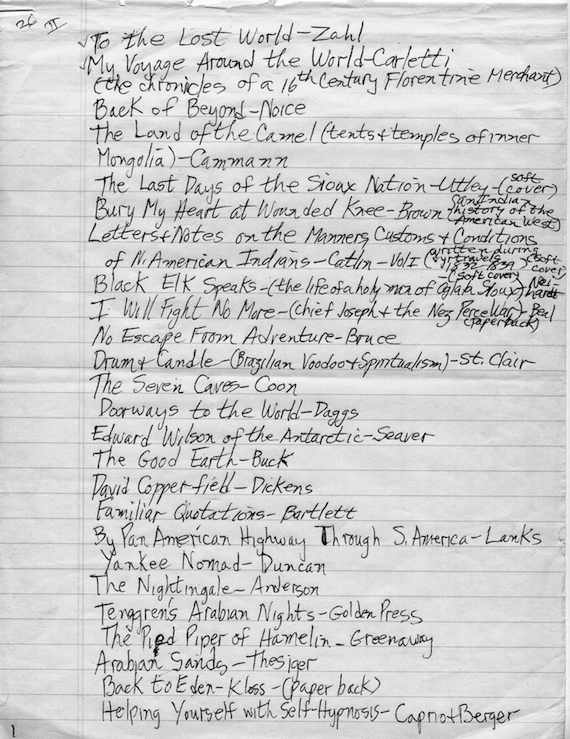 26 II
✓To the Lost World-Zahl
✓My Voyage Around the World-Carletti
(the chronicles of a 16th Century Florentine Merchant)
Back of Beyond-Noice
The Land of the Camel (tents & temples of inner
Mongolia)-Cammann
The Last Days of the Sioux Nation-Utley-(soft cover)
Bury My Heart at Wounded Knee-Brown (an Indian history of the American West)
Letters & Notes on the Manners Customs & Conditions
of N. American Indians-Catlin-Vol I (written during 8 yr travels 1832-839) (soft cover)
Black Elk Speaks-(the life of a holy man of Oglala Sioux)-Neihardt (soft cover)
I Will Fight No More-(Chief Joseph & the Nez Perce War)-Beal (paperback)
No Escape From Adventure-Bruce
Drum & Candle-(Brazilian Voodoo & Spiritualism)-St. Clair
The Seven Caves-Coon
Doorways to the World-Daggs
Edward Wilson of the Antarctic-Seaver
The Good Earth-Buck
David Copperfield-Dickens
Familiar Quotations-Bartlett
By Pan American Highway Through S. America-Lanks
Yankee Nomad-Duncan
The Nightingale-Anderson
Tenggren's Arabian Nights-Golden Press
The Pied Piper of Hamelin-Greenaway
Arabian Sands-Thesiger
Back to Eden-Kloss-(paper back)
Helping Yourself with Self-Hypnosis-Caprio & Berger
1